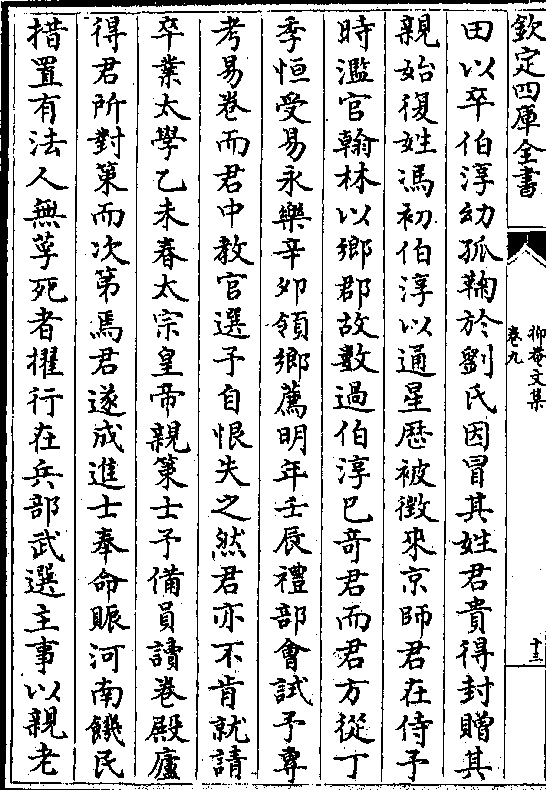 欽定四庫全書
抑菴文集
卷九
十三
田以卒伯淳幼孤鞠於劉氏因冒其姓君貴得封贈其
親始復姓馮初伯淳以通星厯被徴來京師君在侍予
時濫官翰林以鄉郡故數過伯淳已竒君而君方從丁
季恒受易永樂辛夘領鄉薦明年壬辰禮部㑹試予專
考易卷而君中教官選予自恨失之然君亦不肯就請
卒業太學乙未春太宗皇帝親策士予備員讀卷殿廬
得君所對策而次第焉君遂成進士奉命賑河南饑民
措置有法人無莩死者擢行在兵部武選主事以親老